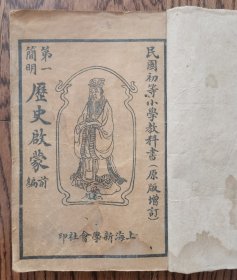 民國初等小學教科書（原版增訂）
第一簡明
歷史啟蒙
前編
上海新學會社印